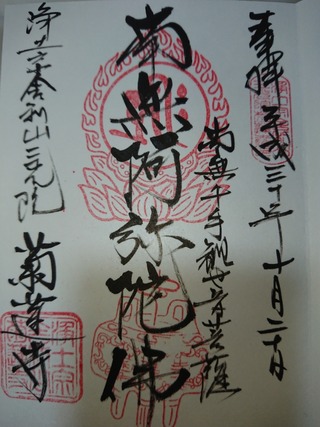 奉拝 平成三十年十月二十日
南無千手観世音菩薩
南無阿弥陀佛
浄土宗舎利山三光院
菊蓮寺